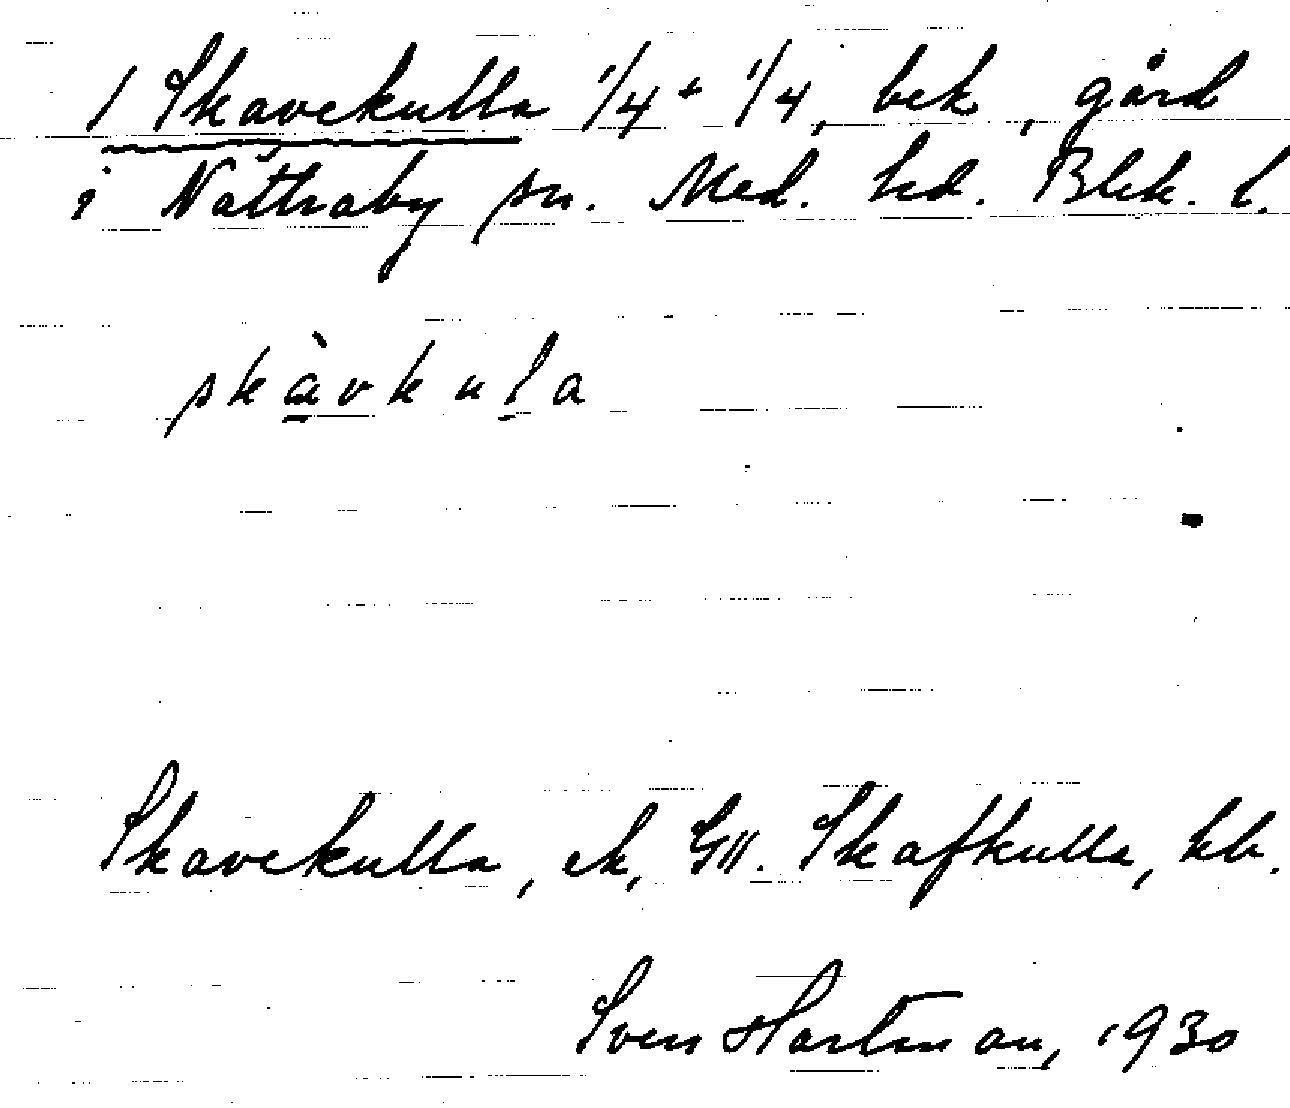 1 Skavekulla 1/4 + 1/4, bek, gård
i Nättraby sn. Med. hd. Blek. l.
skàvkula
Skavekulla, ek, GII. Skafkulla, kb.
Sven Hartman, 1930